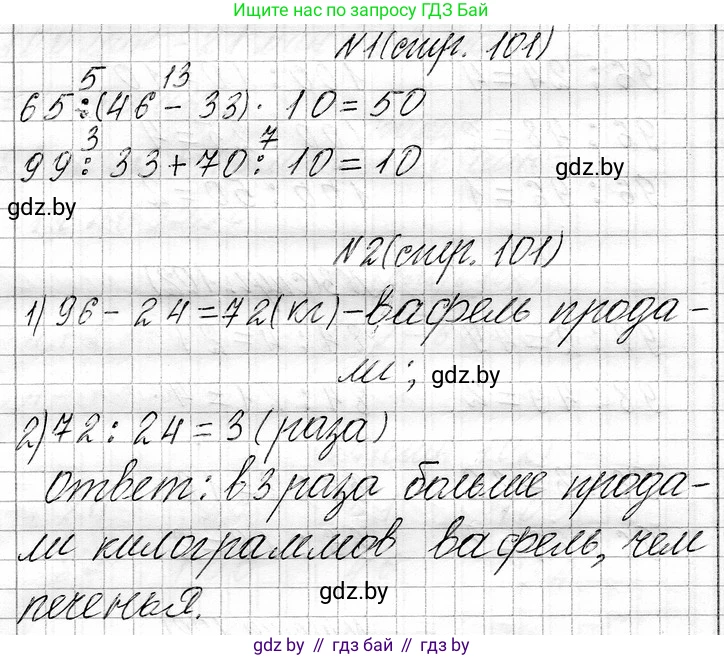 Ищите нас по запросу ГДЗ Бай
N1(стр. 101)
5 13
65:(46-33)·10=50
3 7
99:33+70:10=10
gdz.by
gdz.by
N2(стр. 101)
1) 96-24=72(кг)-вафель прода-
ли;
gdz.by
2) 72:24=3(раза)
Ответ: в 3 раза больше прода-
ли килограммов вафель, чем
gdz.by
печенья.
gdz.by // гдз бай // gdz.by